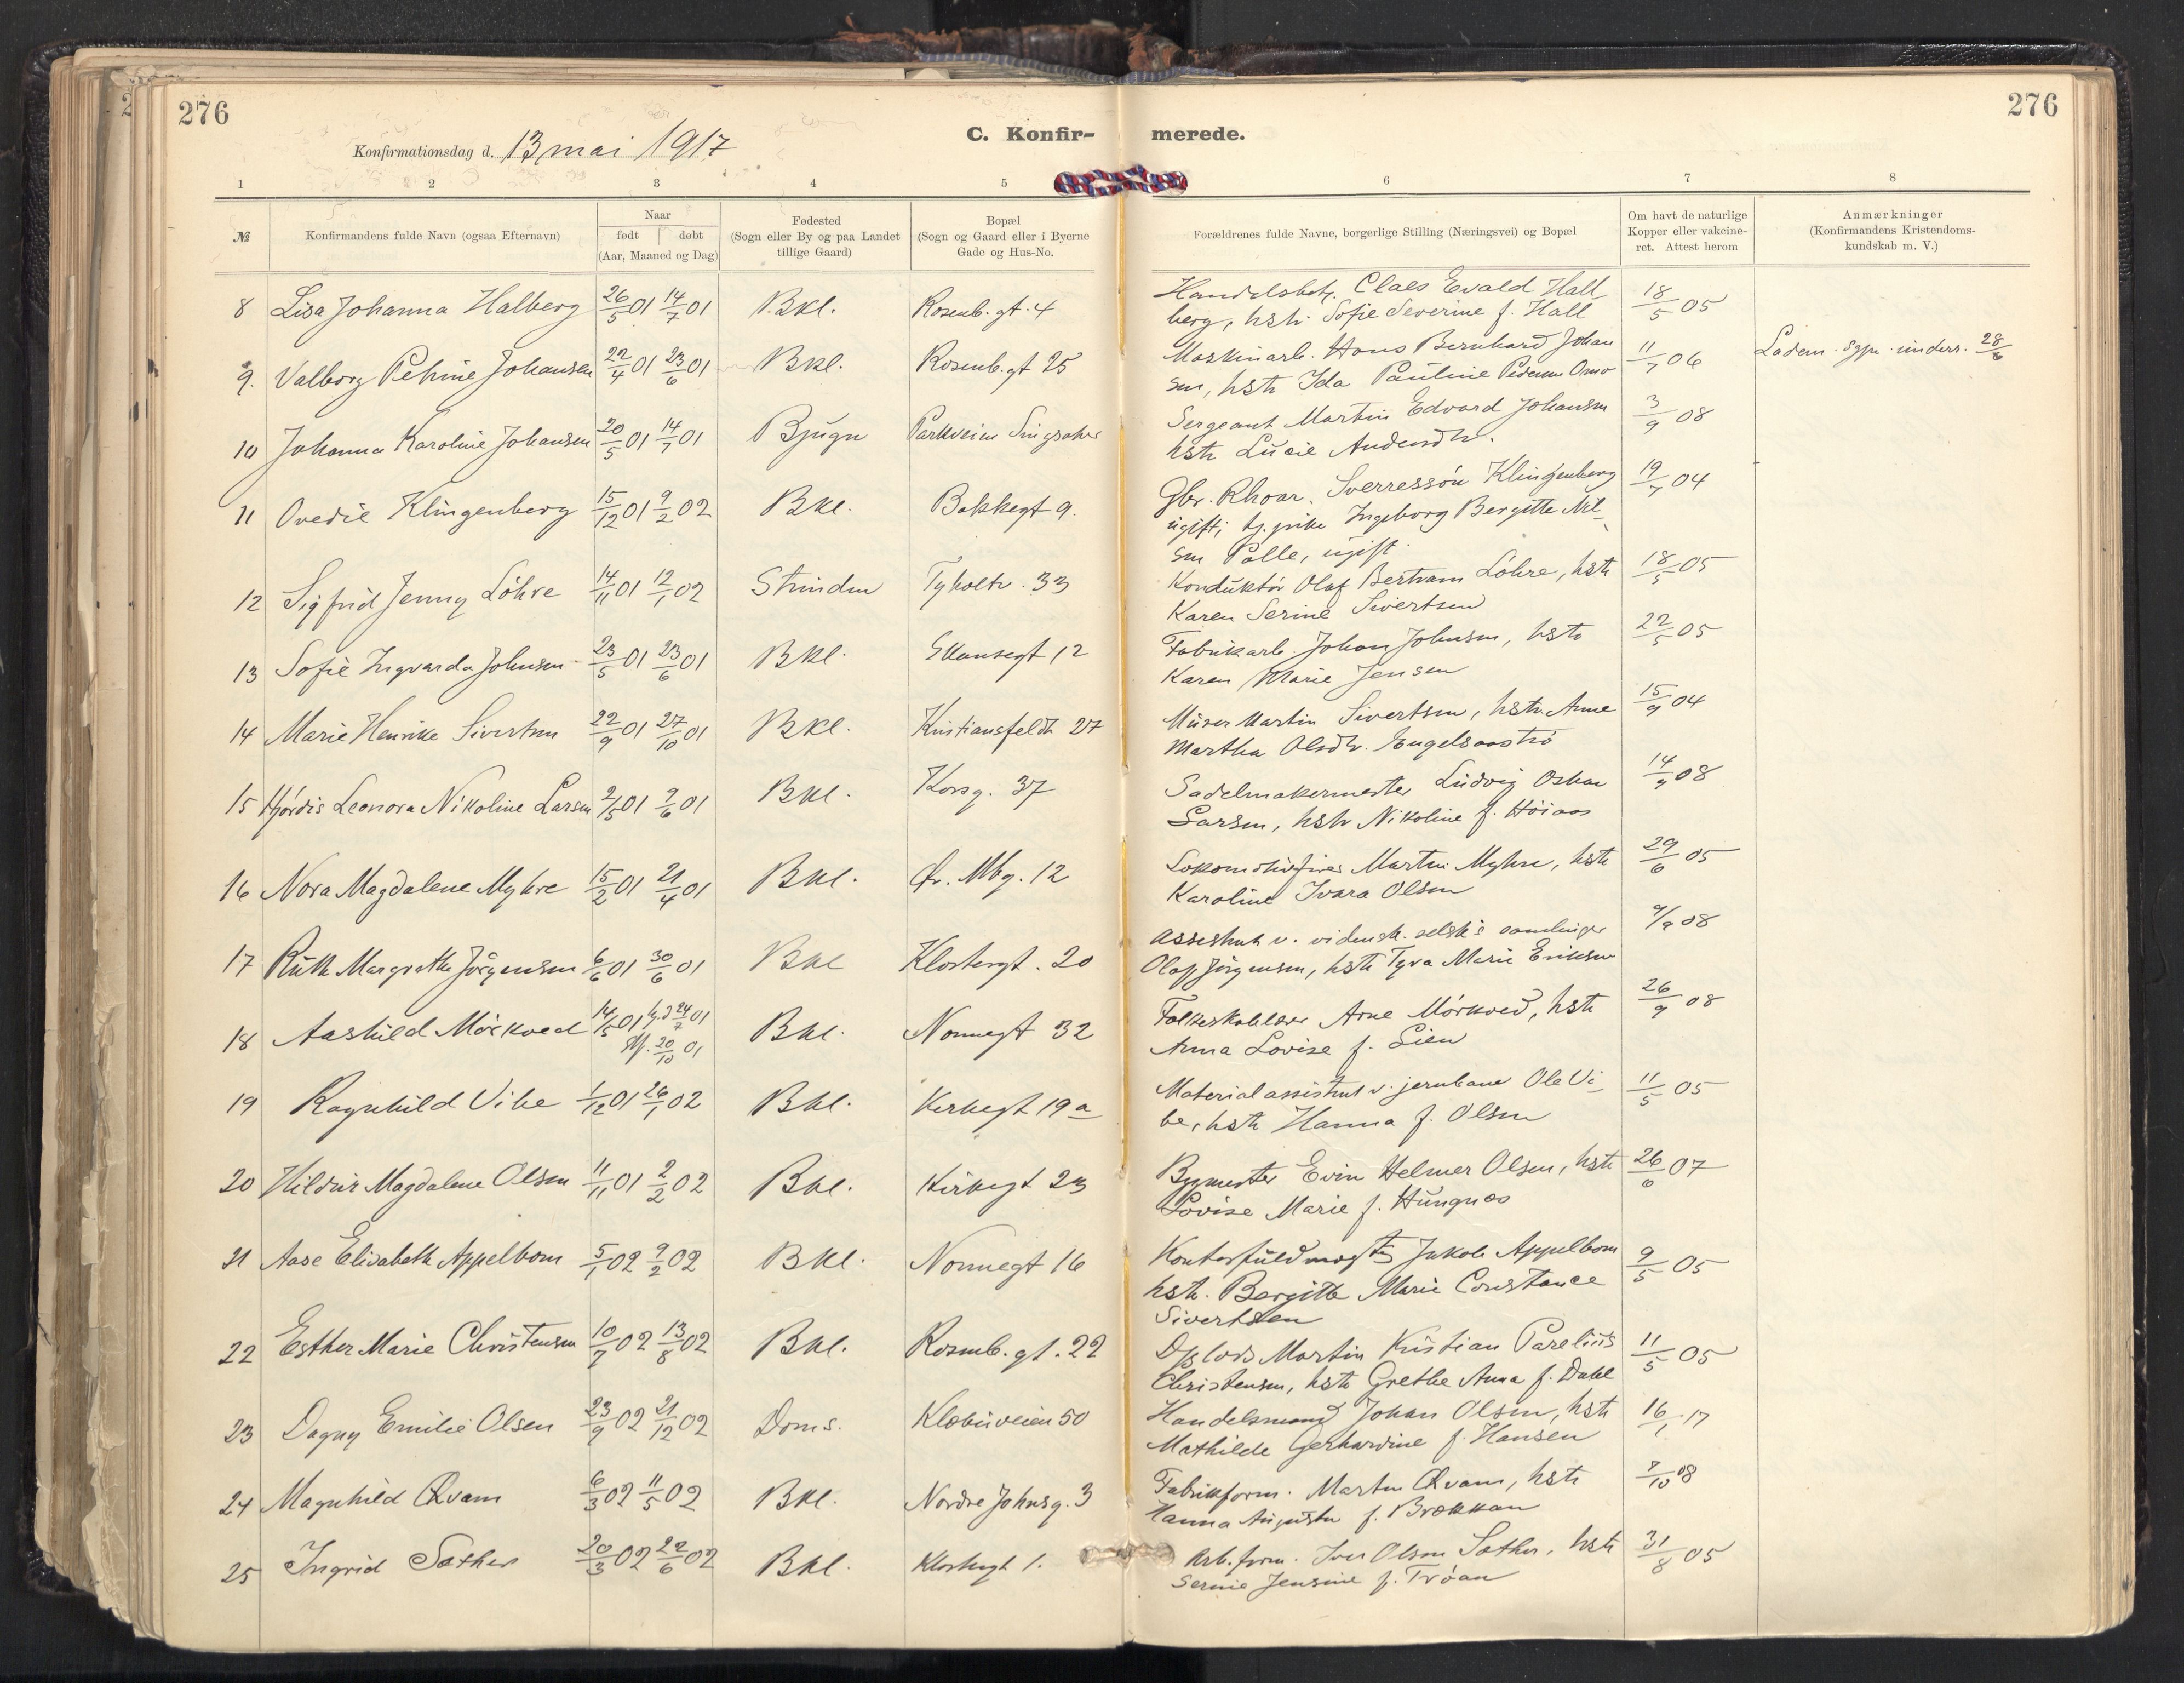 276
276
Konfirmationsdag d. 13 mai 1917
C. Konfir- merede.
1 2 3 4 5 6 7 8
№ Konfirmandens fulde Navn (ogsaa Efternavn) Naar født døbt (Aar, Maaned og Dag) Fødested (Sogn eller By og paa Landet tillige Gaard) Bopæl (Sogn og Gaard eller i Byerne Gade og Hus-No. Forældrenes fulde Navne, borgerlige Stilling (Næringsvei) og Bopæl Om havt de naturlige Kopper eller vakcineret. Attest herom Anmærkninger (Konfirmandens Kristendomskundskab m. V.)
8 Lisa Johanna Halberg 26/5 01 14/7 01 Bkl. Rosenb. gt. 4 Claes Evald Hall 18/5 05
berg, hstr Sofie Severine f. Hall
9. Valborg Petrine Johansen 22/4 01 23/6 01 Bkl. Rosenb. gt 25 Maskinarb. Hans Bernhard Johan 11/7 06 28/6
sen, hstr Ida Pauline Pedersen
10 Johanna Karoline Johansen 20/5 01 14/7 01 Bjugn Parkveien Singsaker Sergeant Martin Edvard Johansen 3/9 08
hstr Lucie Andersdtr.
11 Ovedie Klingenberg 15/12 01 9/2 02 Bkl. Bakkegt 9. Gbr. Rhoar Sverressøn Klingenberg 19/7 04
ugift; Ingeborg Bergitte Nil-
sen Palle, ugift
12 Sigfrid Jenny Löhre 14/11 01 12/1 02 Strinden Tyholtv. 33 Konduktör Olaf Bertram Löhre, hstr 18/5 05
Karen Serine Sivertsen
13 Sofie Ingvarda Johnsen 23/5 01 23/6 01 Bkl. Skansegt 12 Fabrikarb. Johan Johnsen, hstr 22/5 05
Karen Marie Jensen
14 Marie Henrike Sivertsen 22/9 01 27/10 01 Bkl. Kristiansfeldt 27 Murer Martin Sivertsen, hstr. Anne 15/9 04
Martha Olsdtr. Engelsaastrø
15 Hjördis Leonora Nikoline Larsen 2/5 01 9/6 01 Bkl. Korsg. 37 Sadelmakermester Ludvig Oskar 14/9 08
Larsen, hstr Nikoline f. Höiaas
16 Nora Magdalene Myhre 15/2 01 21/4 01 Bkl. Ør. Mbg. 12 Lokomotivfyrer Martin Myhre, hstr 29/6 05
Karoline Ivara Olsen
17 Ruth Margrethe Jörgensen 6/6 01 30/6 01 Bkl Klostergt. 20 Assistent v. vidensk. selsk's samlinger 9/9 08
Olaf Jörgensen, hstr Tyra Marie Eriksen
18 Aashild Mörkved 14/5 01 hj.d 24/7 01 Bkl. Nonnegt 32 Folkeskolelærer Arne Mörkved, hstr 26/9 08
20/10 01 Anna Lovise f. Lien
19 Ragnhild Vibe 1/12 01 26/1 02 Bkl. Kirkegt 19a Materialassistent v. jernbane Ole Vi- 11/5 05
be, hstr Hanna f. Olsen
20 Hildur Magdalene Olsen 11/11 01 2/2 02 Bkl. Kirkegt 23 Bygmester Evin Helmer Olsen, hstr 26/6 07
Lovise Marie f. Hungnæs
21 Aase Elisabeth Appelbom 5/1 02 9/2 02 Bkl. Nonnegt 16 Kontorfuldmægtig Jakob Appelbom 9/5 05
hstr. Bergitte Marie Constance
Sivertsen
22 Esther Marie Christensen 10/7 02 13/8 02 Bkl. Rosenb. gt. 22 Dpslods Martin Kristian Parelius 11/5 05
Christensen, hstr Grethe Anna f. Dahl
23 Dagny Emilie Olsen 23/9 02 21/12 02 Doms. Klæbuveien 50 Handelsmand Johan Olsen, hstr 16/1 17
Mathilde Gerhardine f. Hansen
24 Magnhild Qvam 6/3 02 11/5 02 Bkl. Nordre Johnsg. 3 Fabrikform. Martin Qvam, hstr 7/10 08
Hanna Augusta f. Brækkan
25 Ingrid Sæther 20/3 02 22/6 02 Bkl. Klostergt 1. Arb. form. Iver Olsen Sæther, hstr 31/8 05
Serine Jensine f. Tröan